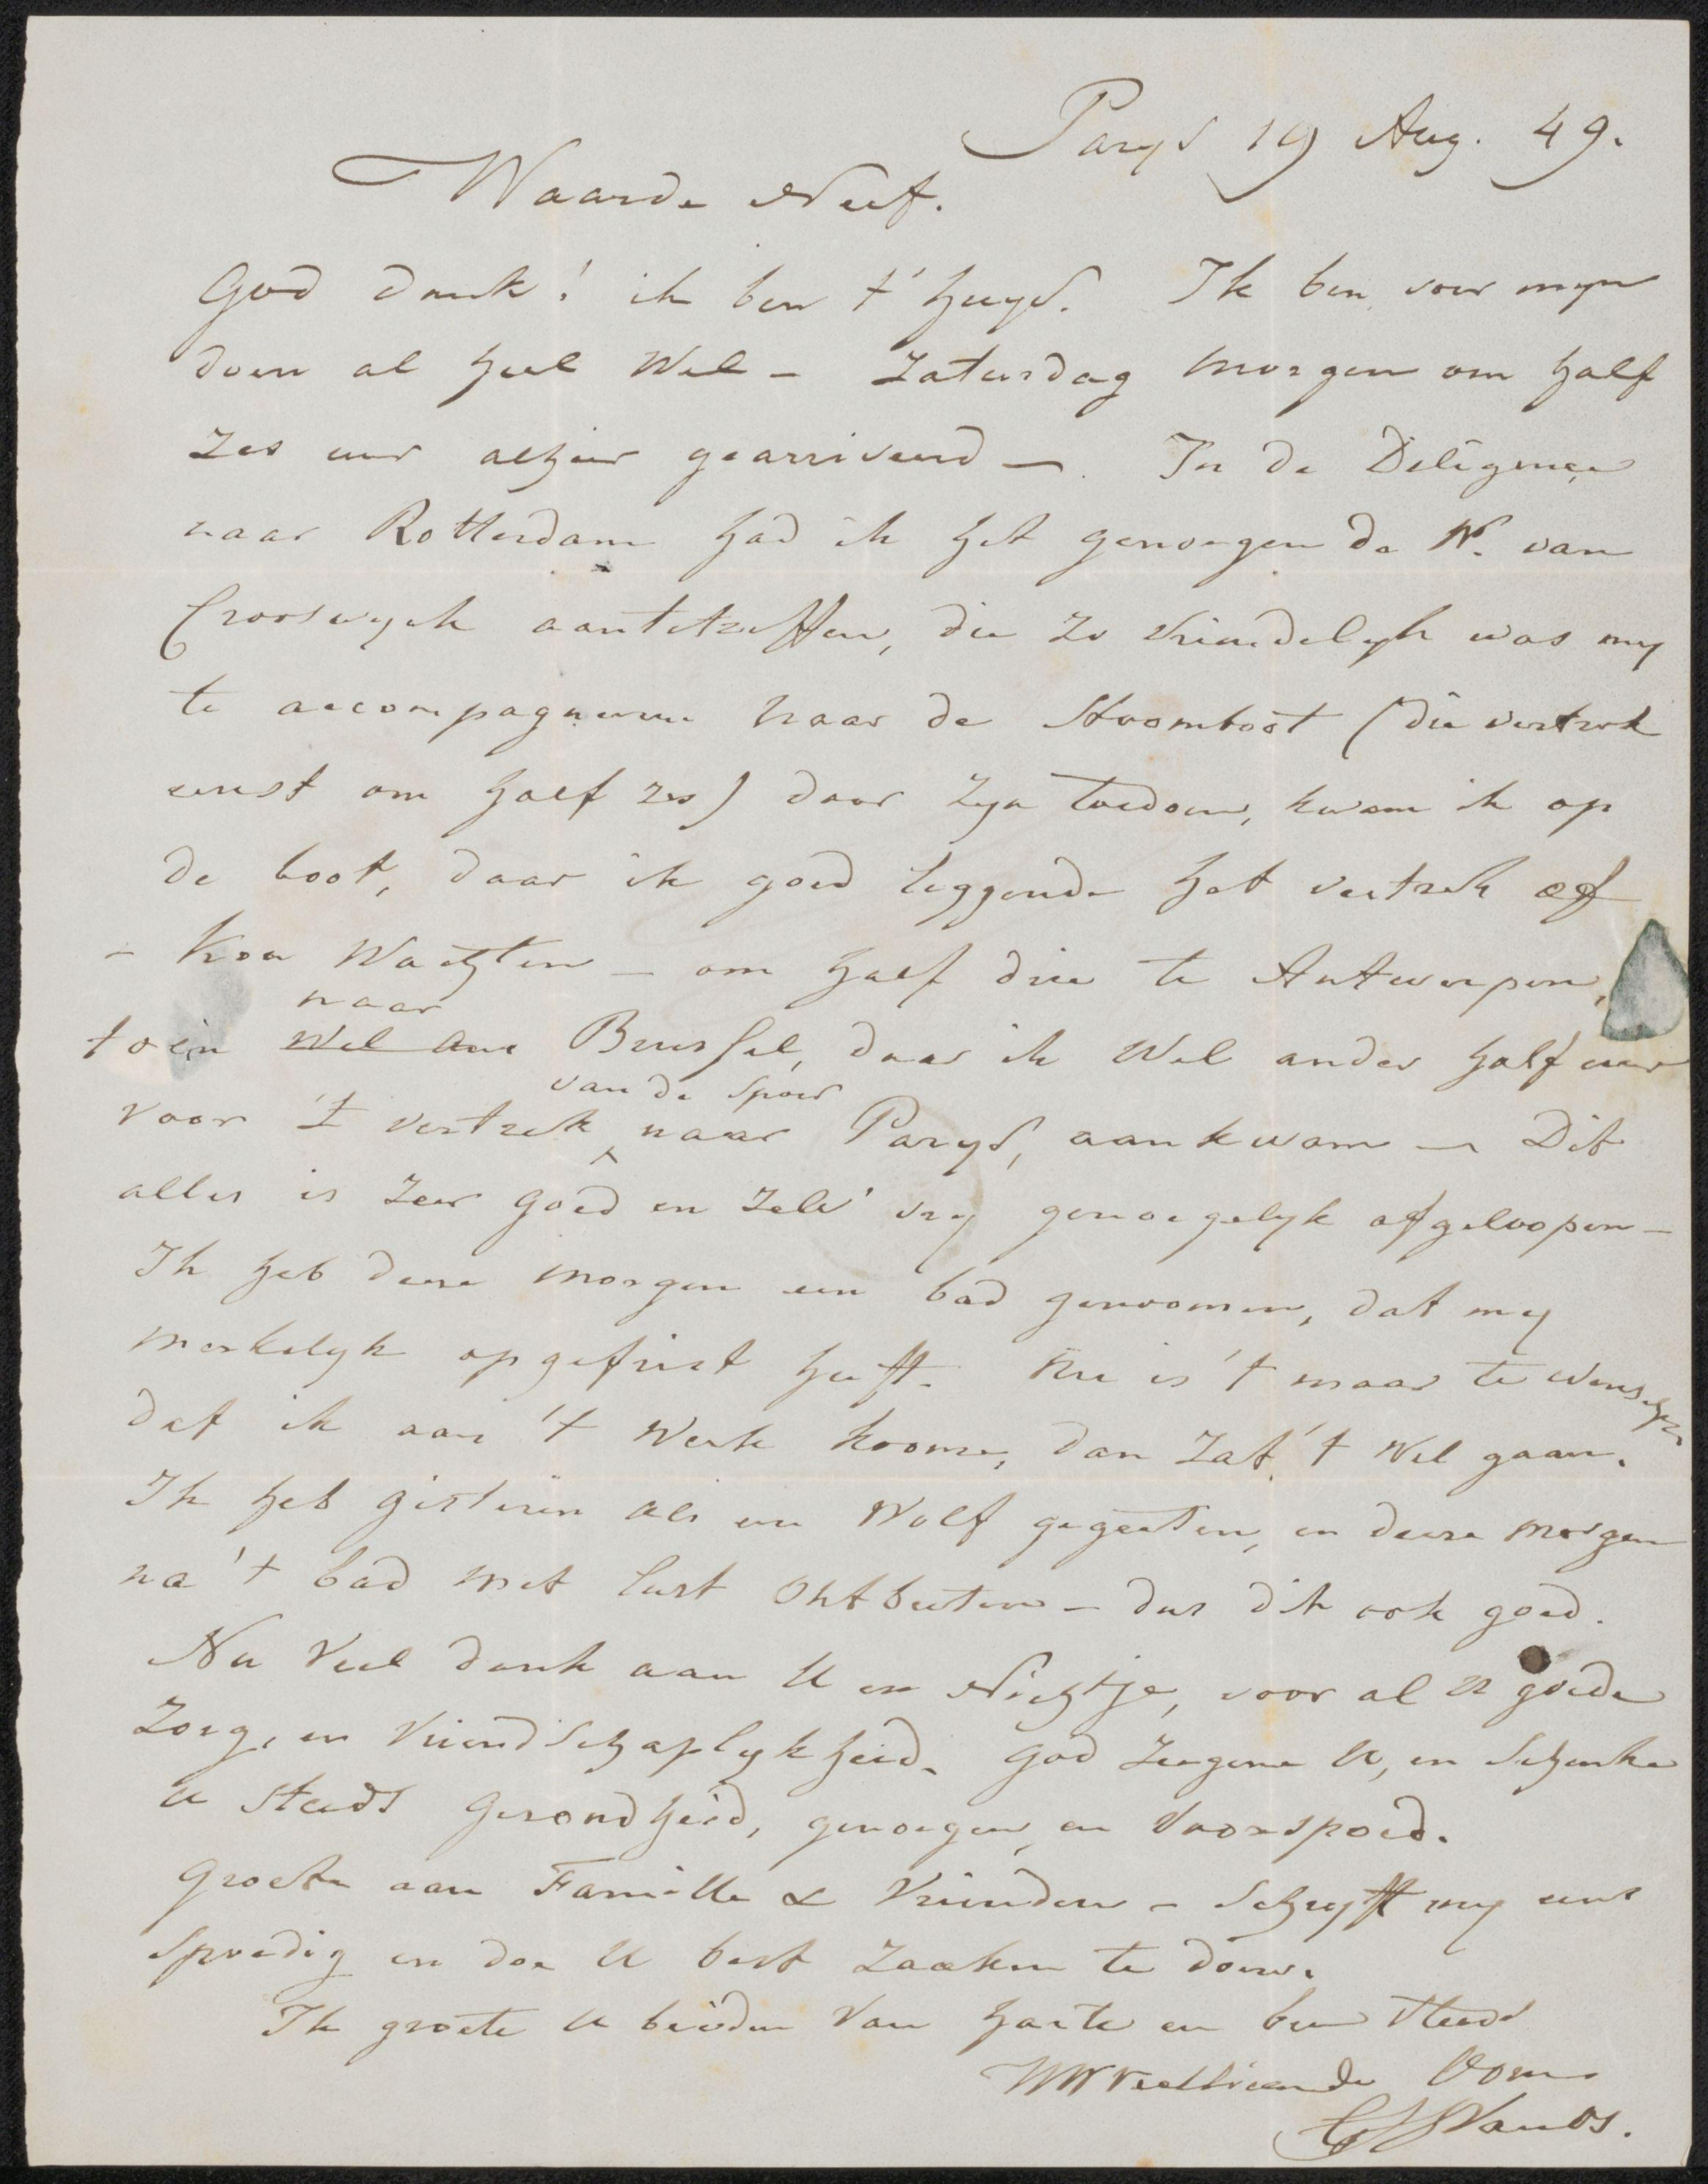 Parys 19 Aug. 49.
Waarde Neef.
God dank! ik ben t'huys. Ik ben voor myn
doen al heel Wel – Zaturdag morgen om half
zes uur alhier gearriveerd –. In de Diligence
naar Rotterdam had ik het genoegen de Hr. van
Crooswyck aantetreffen, die zo vriendelyk was my
te accompagneeren naar de Stoomboot (die vertrok
eerst om half zes) door zyn toedoen, kwam ik op
de boot, daar ik goed leggende het vertrek af
– kon Wachten – om half drie te Antwerpen,
naar
toen Brussel, daar ik Wel ander half uur
van de spoor
voor 't vertrek naar Parys, aankwam – Dit
alles is zeer goed en zelv' vry genoegelyk afgeloopen –
Ik heb deese morgen een bad genoomen, dat my
merkelyk opgefrist heeft. Nu is 't maar te wenschen
dat ik aan 't Werk koome, dan zat 't Wel gaan.
Ik heb gisteren als een Wolf gegeeten, en deese morgen
na 't bad met lust Ontbeeten – dus dit ook goed.
Nu Veel dank aan U en Nichtje, voor al U goede
Zorg, en Vriendschaplykheid. God Zeegene U, en Schenke
U steeds Gezondheid, genoegen, en Voorspoed.
Groete aan Famille & Vrienden – Schryft my eens
Spoedig en doe U best Zaaken te doen.
Ik groete U beiden Van harte en ben steeds
Oom